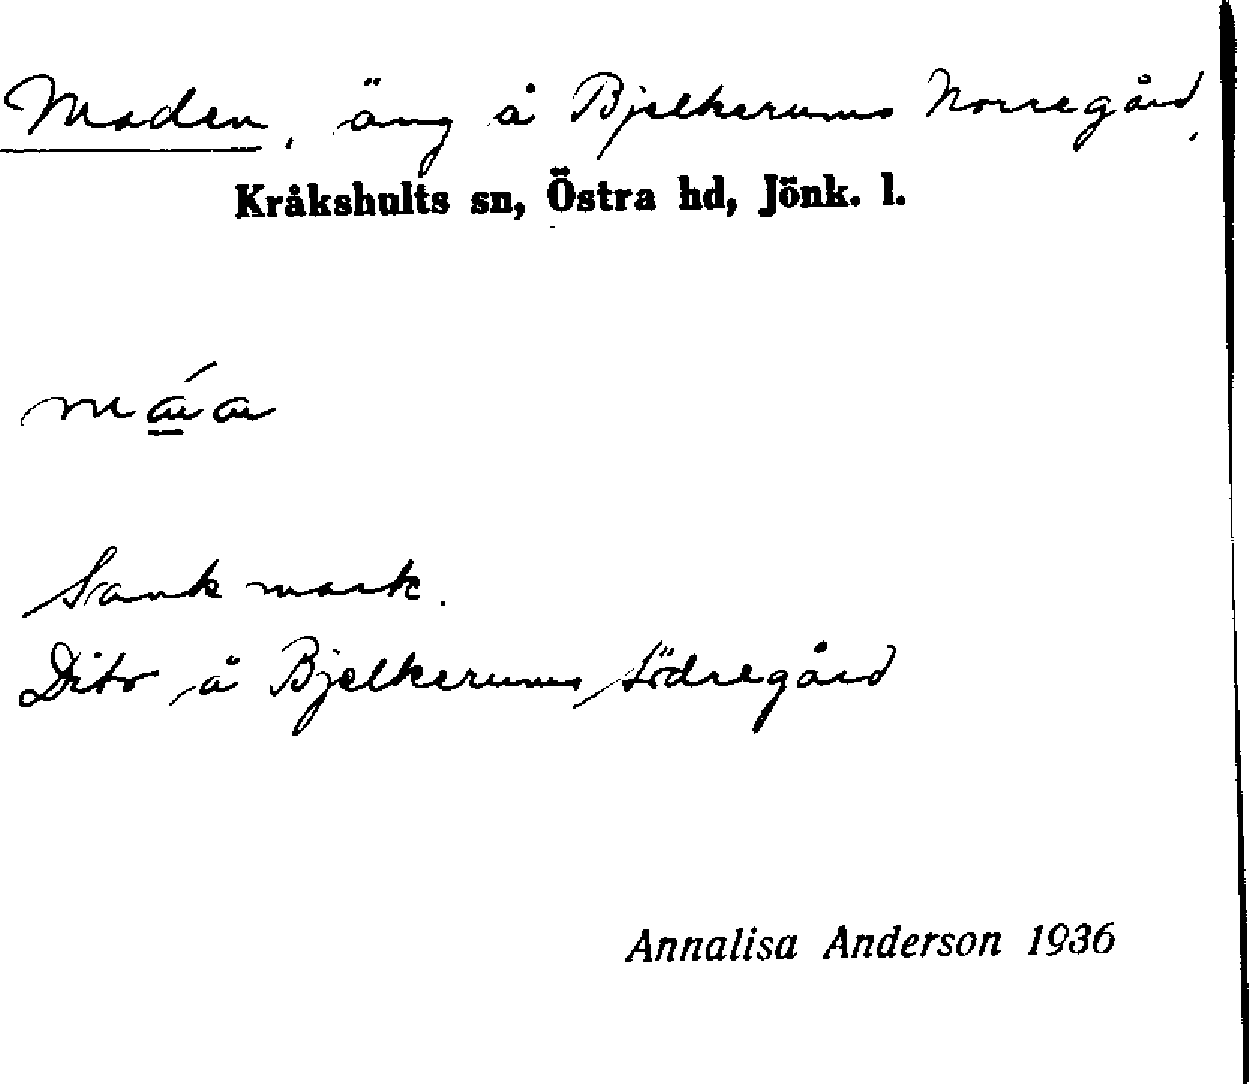 Maden, äng å Bjelkerums Norregård,
Kråkshults sn, Östra hd, Jönk. l.
ma̲´a
Sank mark.
Dito å Bjelkerums Södregård
Annalisa Anderson 1936